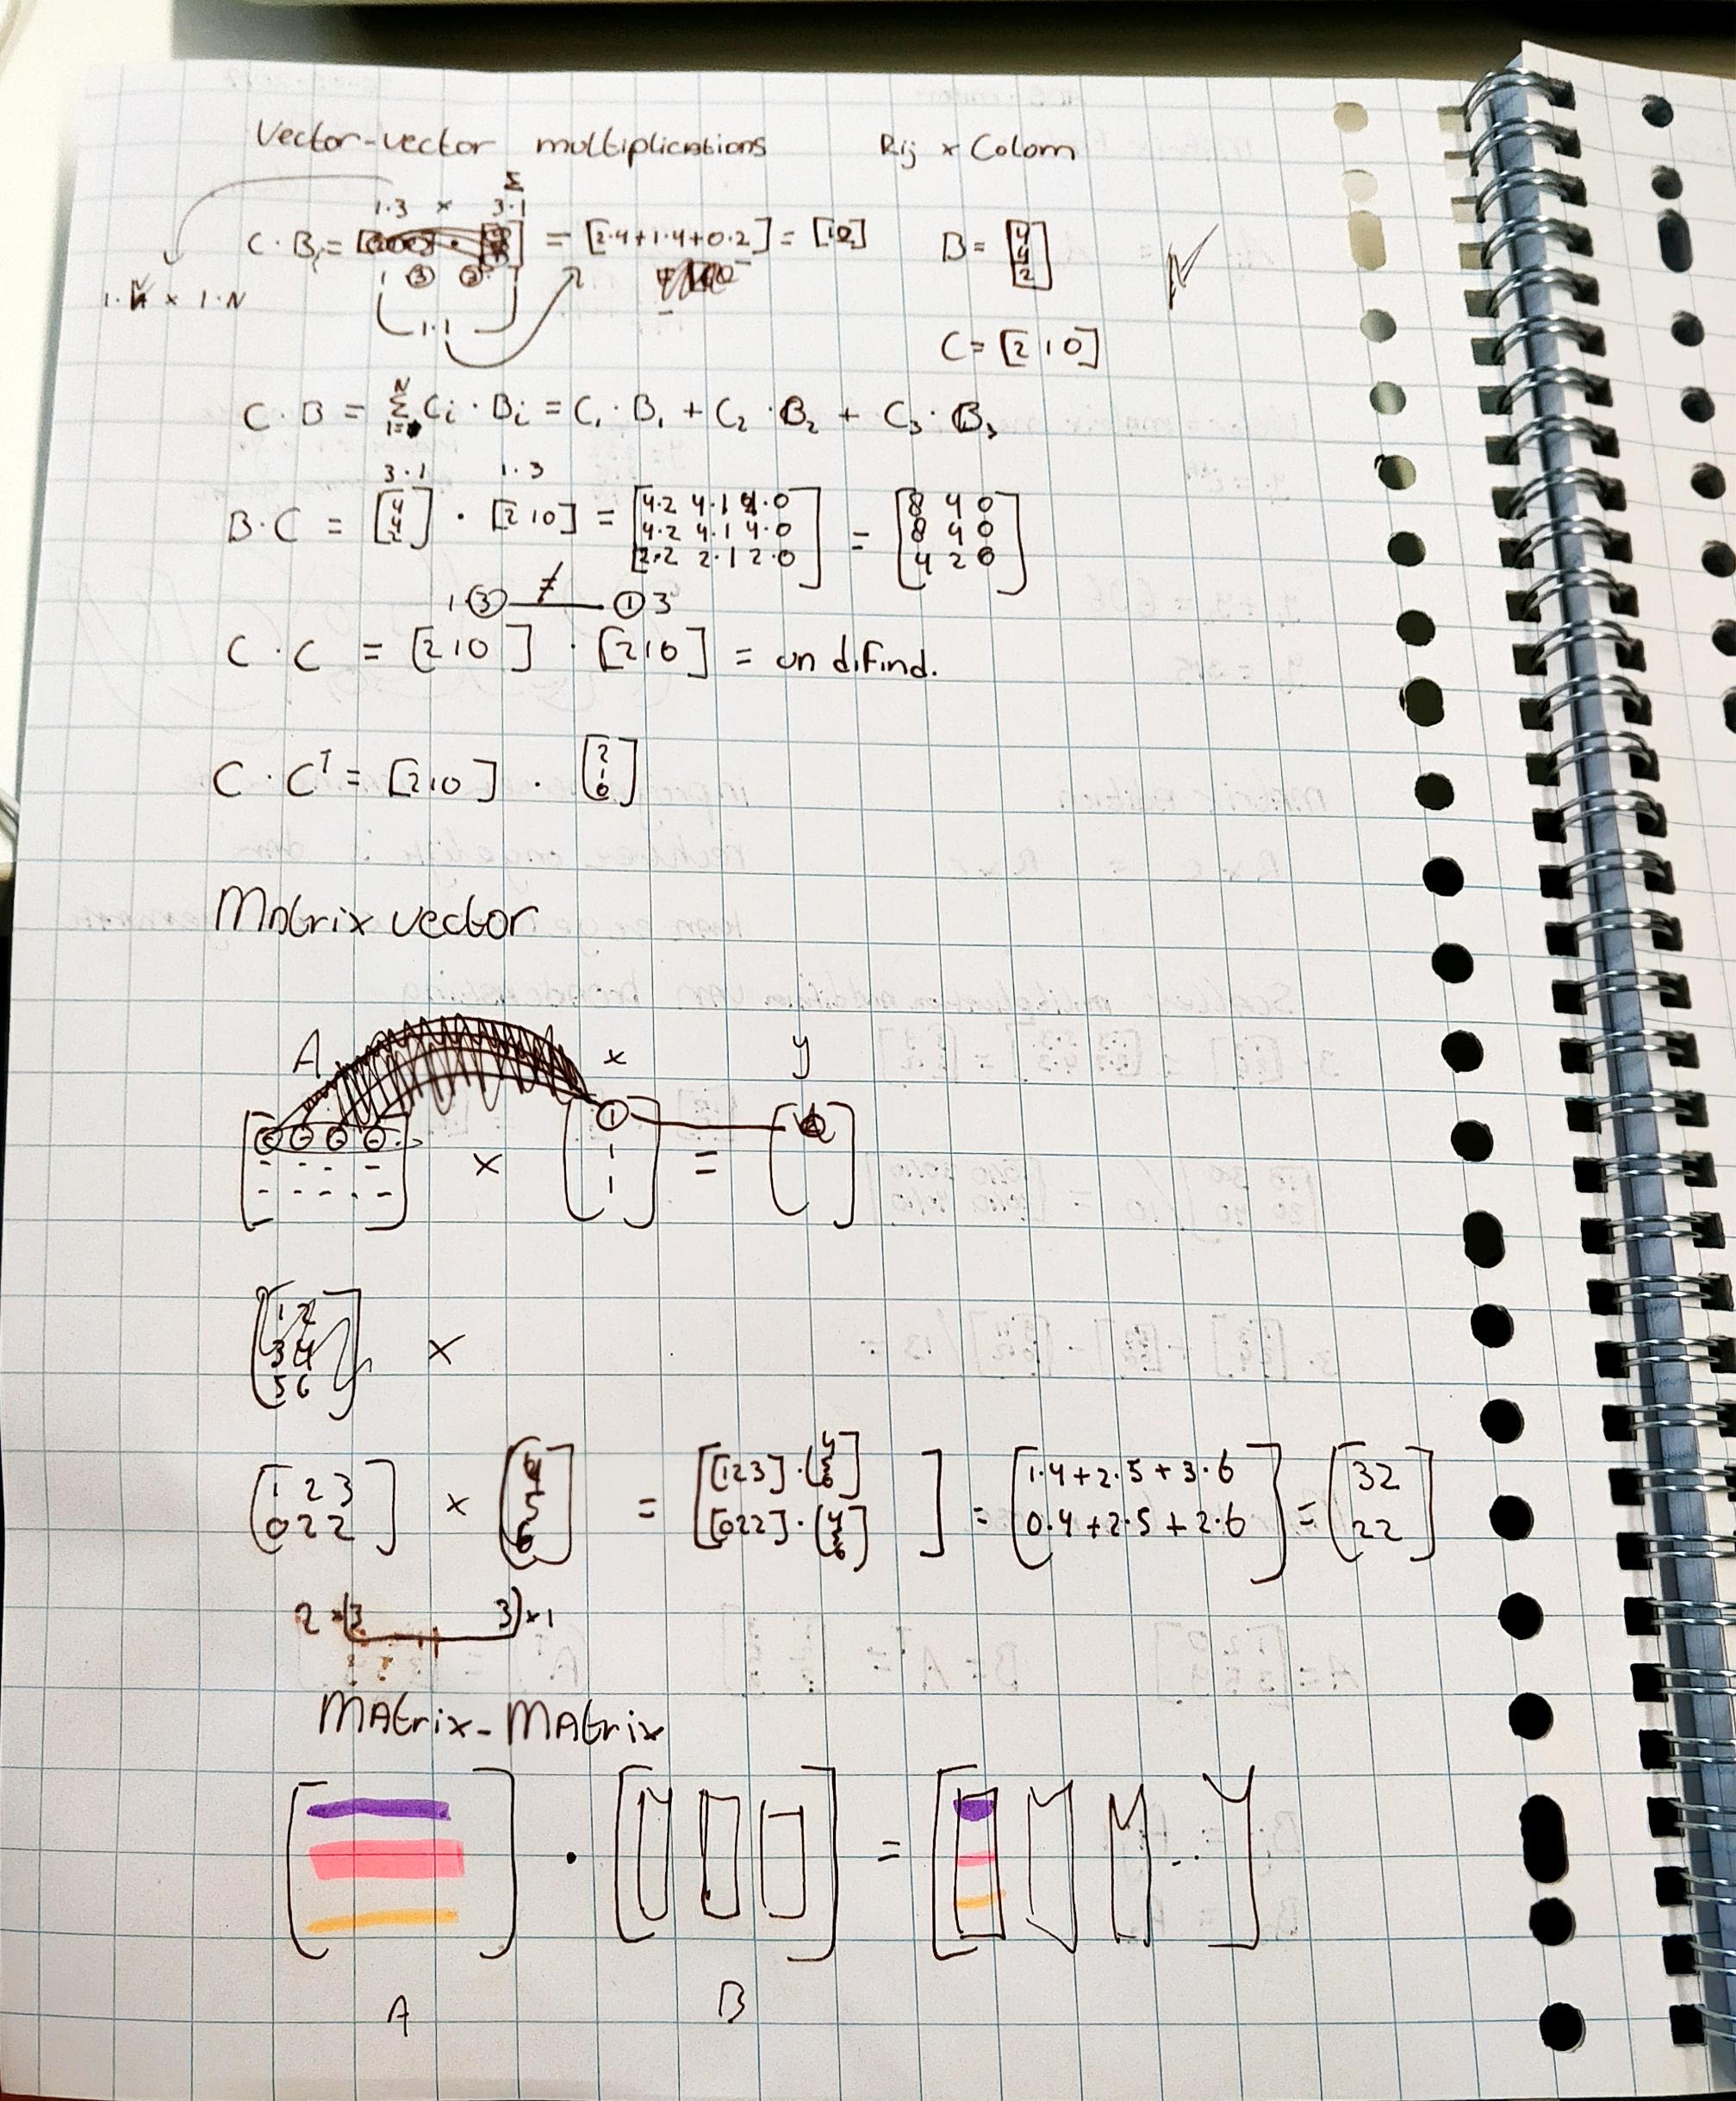 Vector-vector multiplications Rij x Colom
Σ
1·3 × 3·1
C · B = = [2·4+1·4+0·2] = [12] B = [4 4 2]
1 3 3
1·N × 1·N
1·1
C = [2 1 0]
C · B = Σ Ci · Bi = C1 · B1 + C2 · B2 + C3 · B3
3·1 1·3
B·C = [4 4 2] · [2 1 0] = [4·2 4·1 4·0 = [8 4 0
4·2 4·1 4·0 8 4 0
2·2 2·1 2·0] 4 2 0]
1 3 ≠ 1 3
C · C = [2 1 0] · [2 1 0] = undifind.
C · C^T = [2 1 0] · [2 1 0]
Matrix vector
A x y
× =
[1 2
3 4 ×
5 6]
[1 2 3 × [4 = [[1 2 3] · [4 5 6] = [1·4+2·5+3·6 = [32
0 2 2] 5 [0 2 2] · [4 5 6]] 0·4+2·5+2·6] 22]
6]
2 × 3 3 × 1
Matrix-Matrix
· =
A B